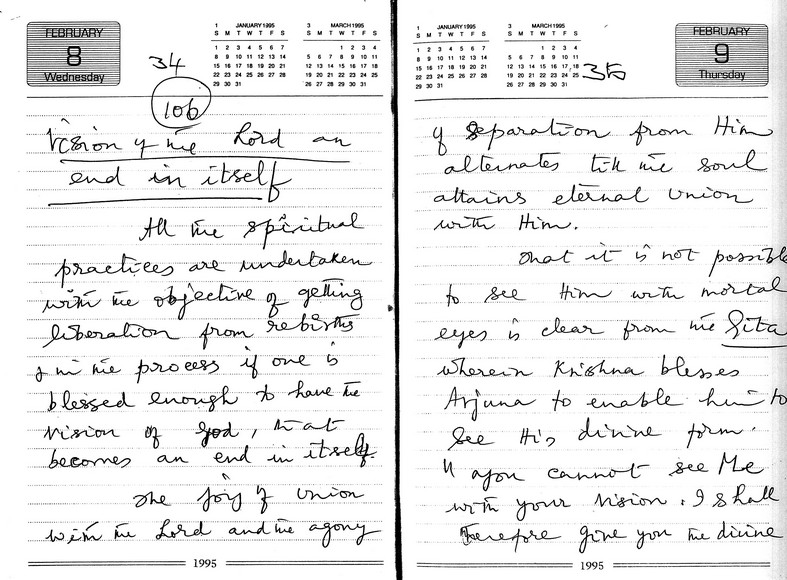 FEBRUARY
8
Wednesday
34
106
1 JANUARY 1995
S M T W T F S
1 2 3 4 5 6 7
8 9 10 11 12 13 14
15 16 17 18 19 20 21
22 23 24 25 26 27 28
29 30 31
3 MARCH 1995
S M T W T F S
1 2 3 4
5 6 7 8 9 10 11
12 13 14 15 16 17 18
19 20 21 22 23 24 25
26 27 28 29 30 31
Vision of the Lord an
end in itself
All the spiritual
practices are undertaken
with the objective of getting
liberation from rebirths
& in the process if one is
blessed enough to have the
vision of God, that
becomes an end in itself.
The joy of union
with the Lord and the agony
1995
1 JANUARY 1995
S M T W T F S
1 2 3 4 5 6 7
8 9 10 11 12 13 14
15 16 17 18 19 20 21
22 23 24 25 26 27 28
29 30 31
3 MARCH 1995
S M T W T F S
1 2 3 4
5 6 7 8 9 10 11
12 13 14 15 16 17 18
19 20 21 22 23 24 25
26 27 28 29 30 31
35
FEBRUARY
9
Thursday
of separation from Him
alternates till the soul
attains eternal union
with Him.
That it is not possible
to see Him with mortal
eyes is clear from the Gita
wherein Krishna blesses
Arjuna to enable him to
see His divine form.
"You cannot see Me
with your vision. I shall
therefore give you the divine
1995